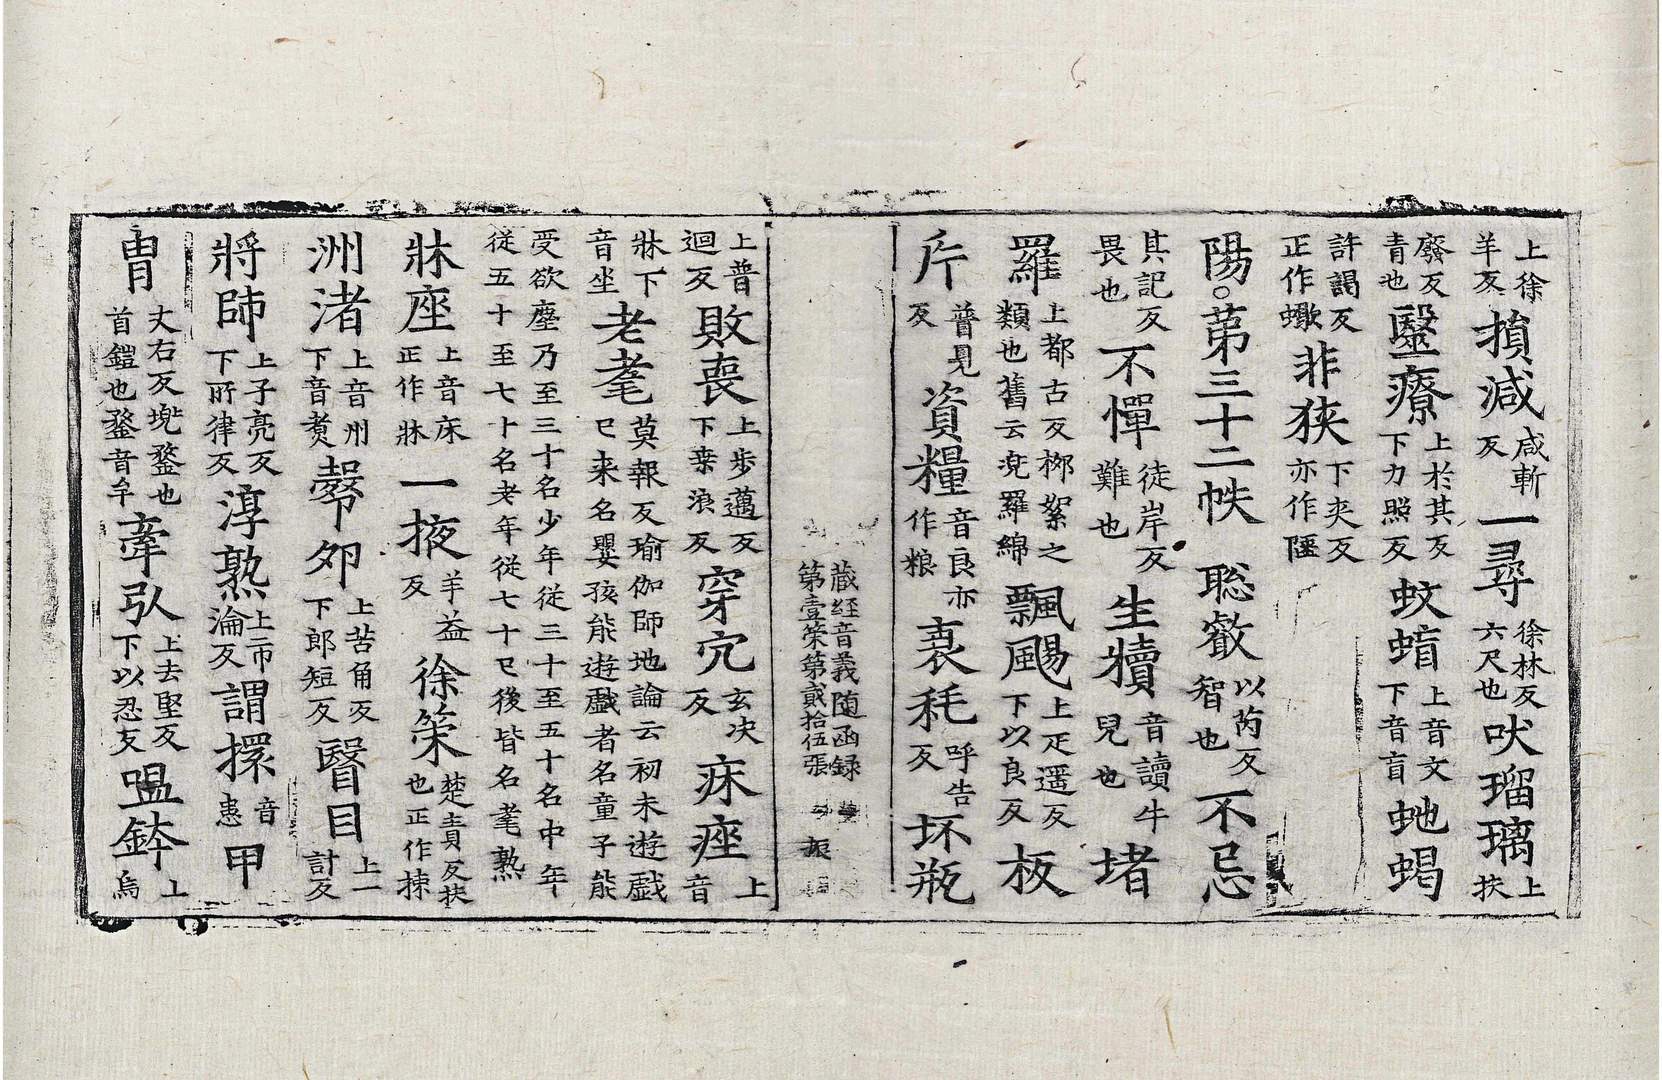 上徐羊反損減咸斬反一尋徐林反六尺也吠瑠璃上扶
廢反青也毉療上於其反下力照反蚊蝱上音文下音盲虵蝎
許謁反正作蠍非狹下夾反亦作陿
陽○第三十二帙 聡叡以芮反智也不忌
其記反畏也不憚徒岸反難也生犢音讀牛兒也堵
羅上都古反𣗳絮之類也舊云兠羅綿飄颺上疋遥反下以良反板
片普見反資糧音良亦作粮衰秏呼告反坏瓶
藏経音義随函録
第壹筞第貳拾伍張
振
上普迴反敗䘮上步邁反下桒浪反穿宂玄决反痳痤上音
牀下音坐老耄莫報反瑜伽師地論云初未遊戲已来名嬰孩能遊戲者名童子能
受欲塵乃至三十名少年従三十至五十名中年従五十至七十名老年従七十已後皆名耄熟
牀座上音床正作牀一掖羊益反徐筞楚責反扶也正作拺
洲渚上音州下音煑㲉夘上苦角反下郎短反瞖目上一計反
將帥上子亮反下所律反淳熟上市淪反謂擐音患甲
冑丈右反兠鍪也首鎧也鍪音牟牽引上去堅反下以忍反嗢鉢上烏